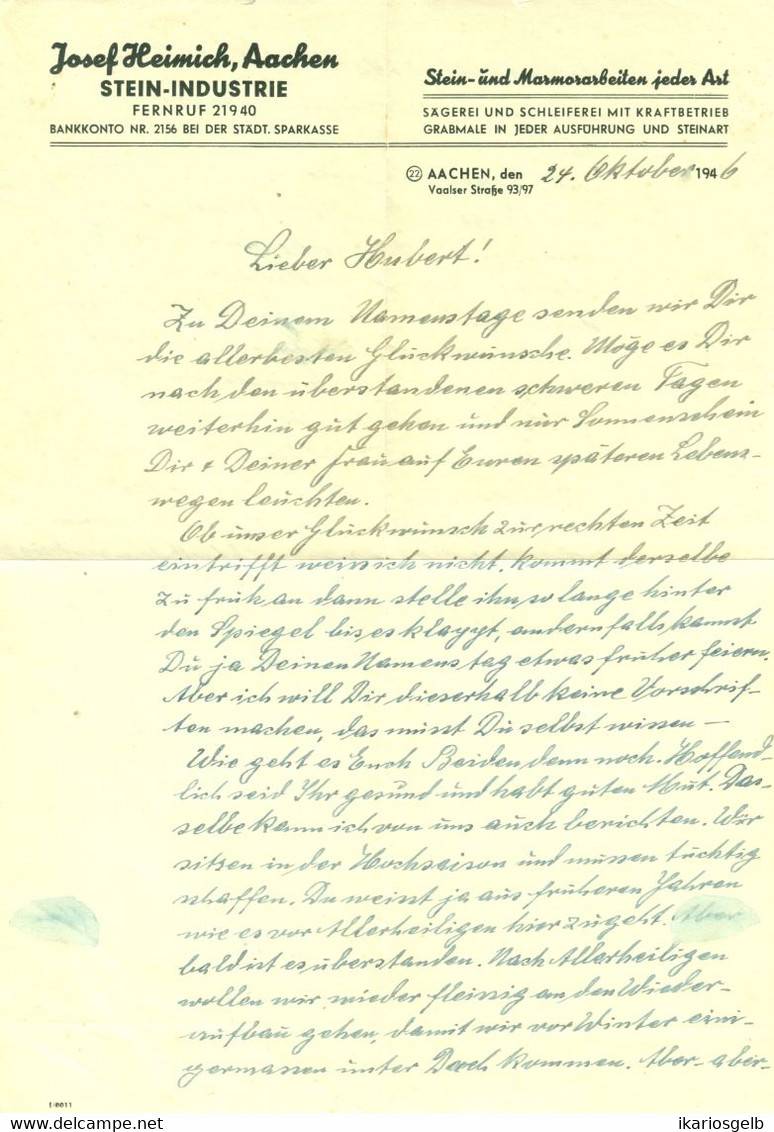 Josef Heimich, Aachen
STEIN-INDUSTRIE
FERNRUF 21940
BANKKONTO NR. 2156 BEI DER STÄDT. SPARKASSE
Stein- und Marmorarbeiten jeder Art
SÄGEREI UND SCHLEIFEREI MIT KRAFTBETRIEB
GRABMALE IN JEDER AUSFÜHRUNG UND STEINART
22 AACHEN, den 24. Oktober 1946
Vaalser Straße 93/97
Lieber Hubert!
Zu Deinem Namenstage senden wir Dir
die allerbesten Glückwünsche. Möge es Dir
nach den überstandenen schweren Tagen
weiterhin gut gehen und nur Sonnenschein
Dir & Deiner Frau auf Euren späteren Lebens-
wegen leuchten.
Ob unser Glückwunsch zur rechten Zeit
eintrifft weiss ich nicht, kommt derselbe
zu früh an dann stelle ihn so lange hinter
den Spiegel bis es klappt, andernfalls kannst
Du ja Deinen Namenstag etwas früher feiern.
Aber ich will Dir dieserhalb keine Vorschrif-
ten machen, das musst Du selbst wissen —
Wie geht es Euch Beiden denn noch. Hoffend-
lich seid Ihr gesund und habt guten Mut. Das-
selbe kann ich von uns auch berichten. Wir
sitzen in der Hochsaison und müssen tüchtig
schaffen. Du weist ja aus früheren Jahren
wie es vor Allerheiligen hier zugeht. Aber
bald ist es überstanden. Nach Allerheiligen
wollen wir wieder fleissig an den Wieder-
aufbau gehen, damit wir vor Winter eini-
germassen unter Dach kommen. Aber- aber-
I/0011
ikariosgelb